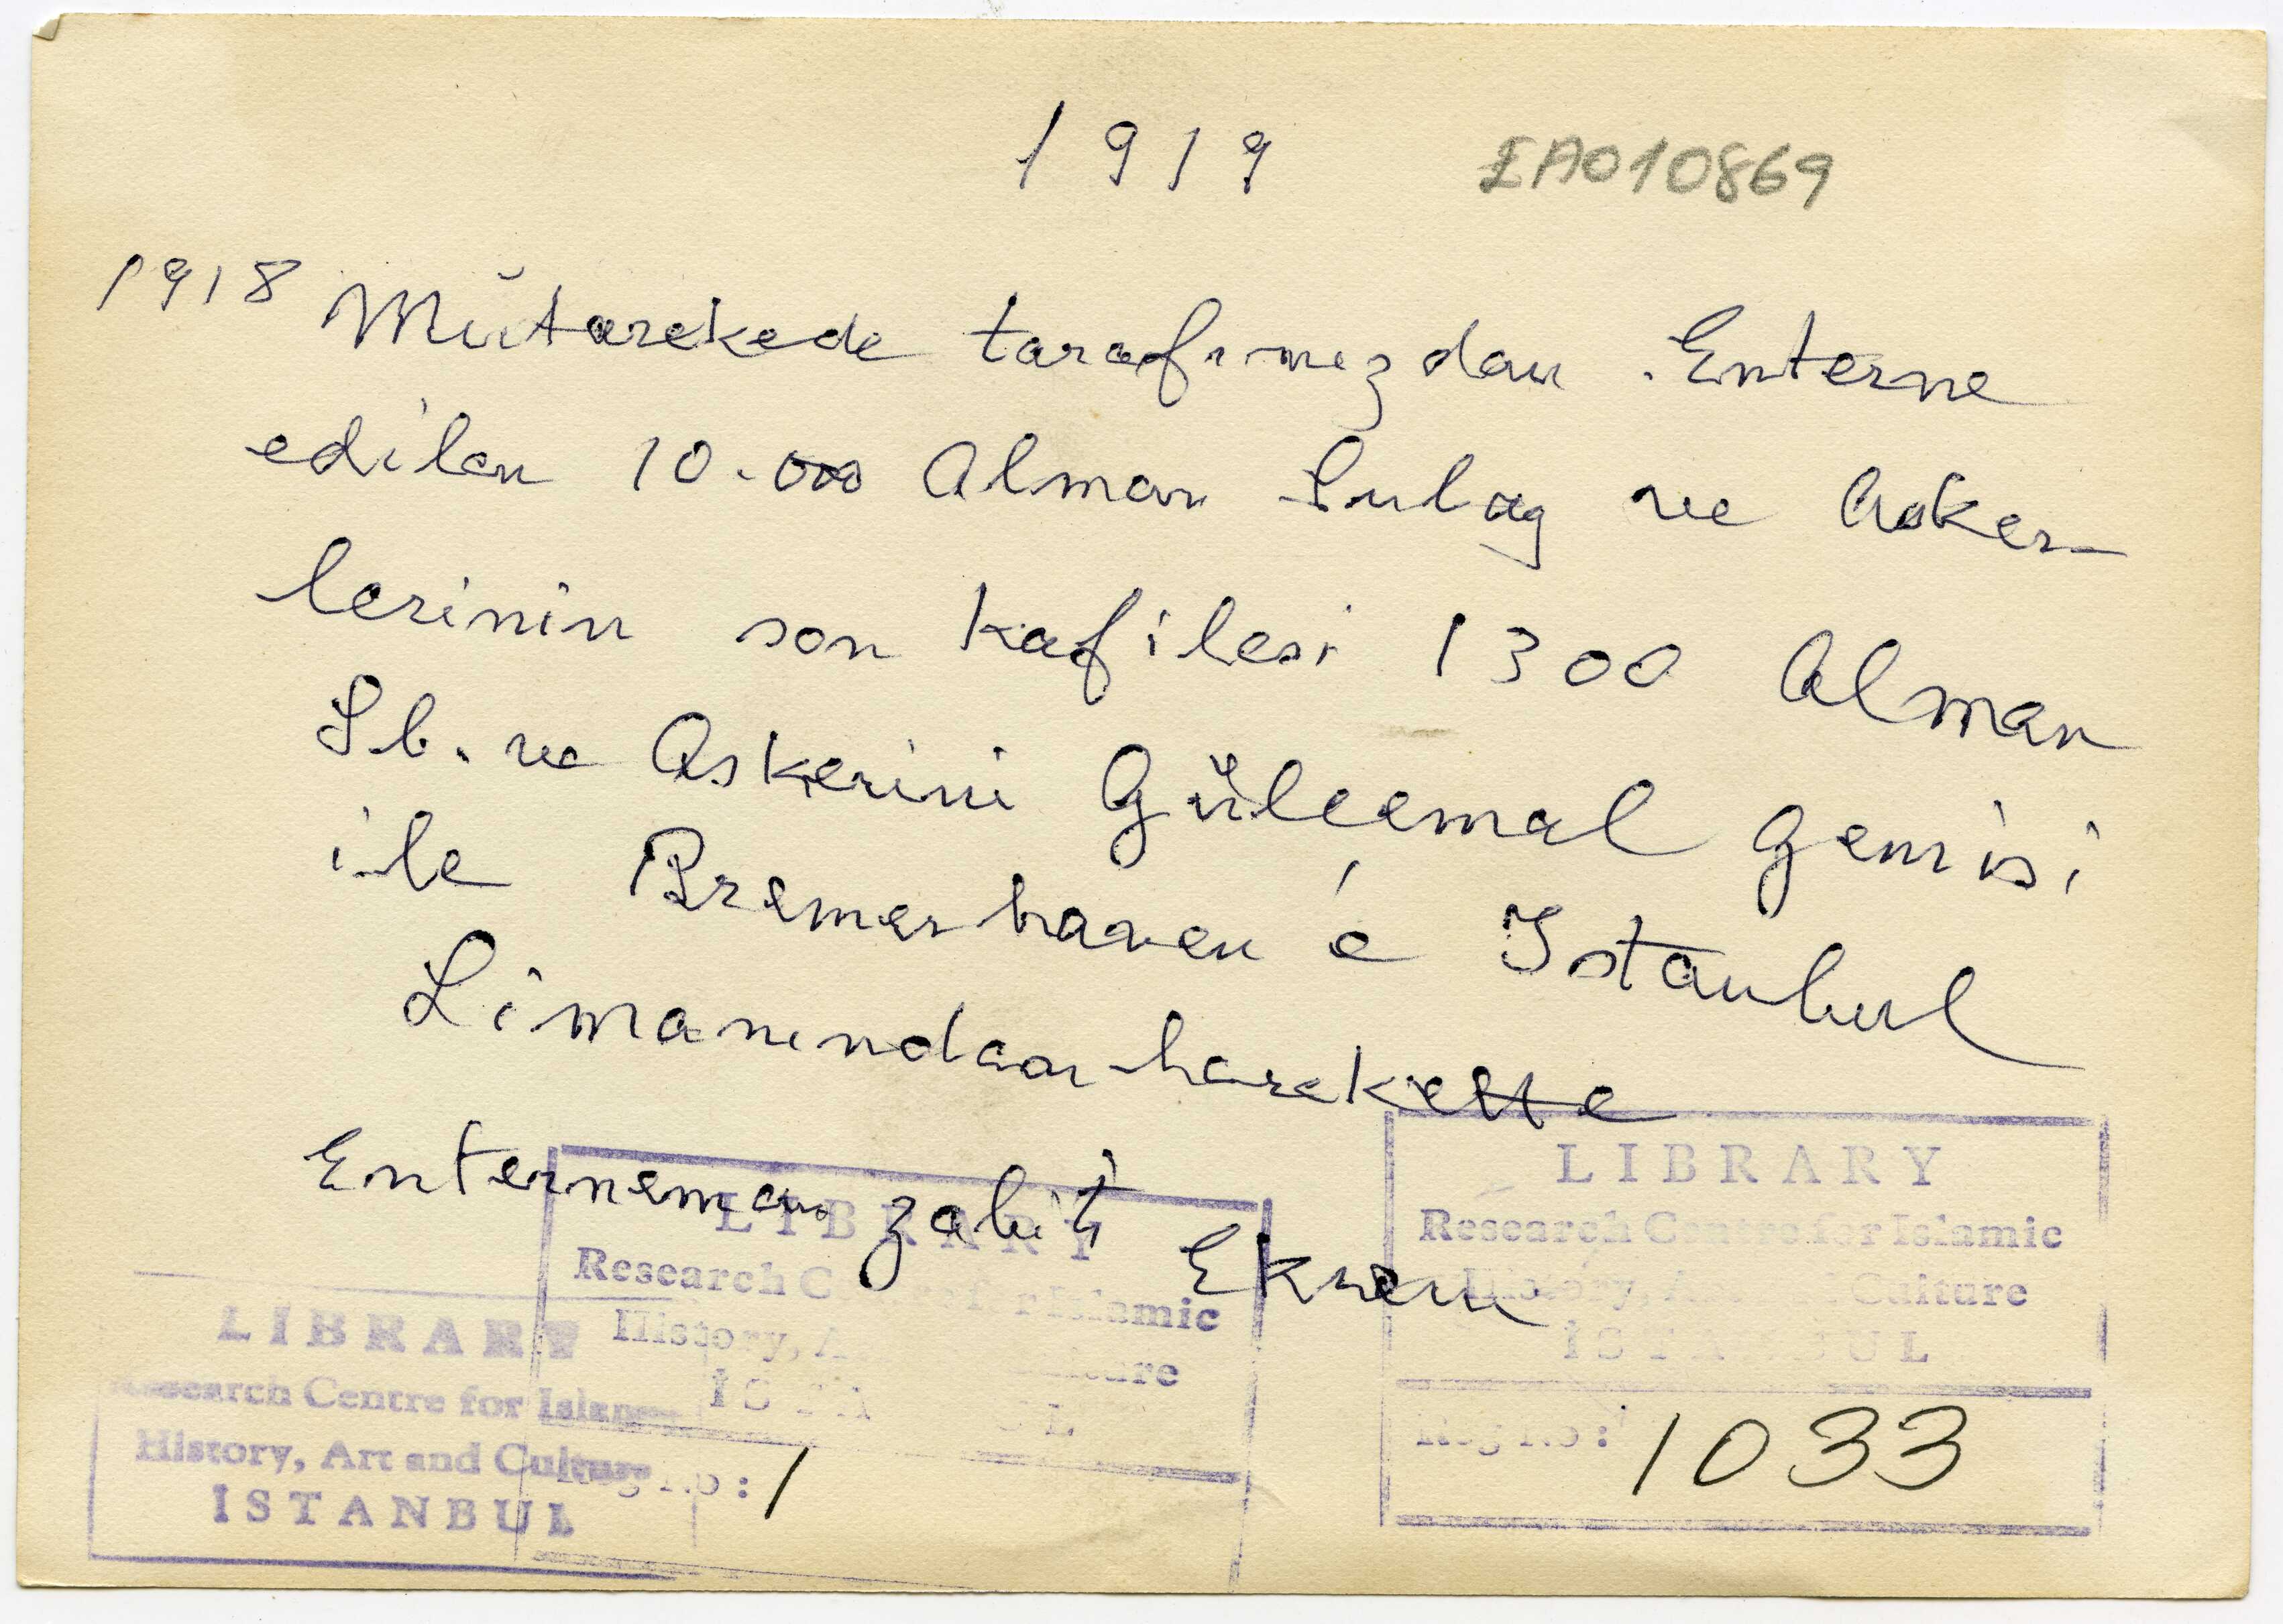 1919
EA010869
1918 Mütarekede tarafımızdan Enterne
edilen 10.000 Alman Subay ve Asker-
lerinin son kafilesi 1300 Alman
Sb. ve Askerini Gülcemal gemisi
ile Bremerhaven'e Istanbul
Limanından harekette
Enterneman zabiti Ekrem
LIBRARY
Research Centre for Islamic
History, Art and Culture
İSTANBUL
Reg No: 1033
LIBRARY
Research Centre for Islamic
History, Art and Culture
İSTANBUL
Reg No: 1
LIBRARY
Research Centre for Islamic
History, Art and Culture
İSTANBUL